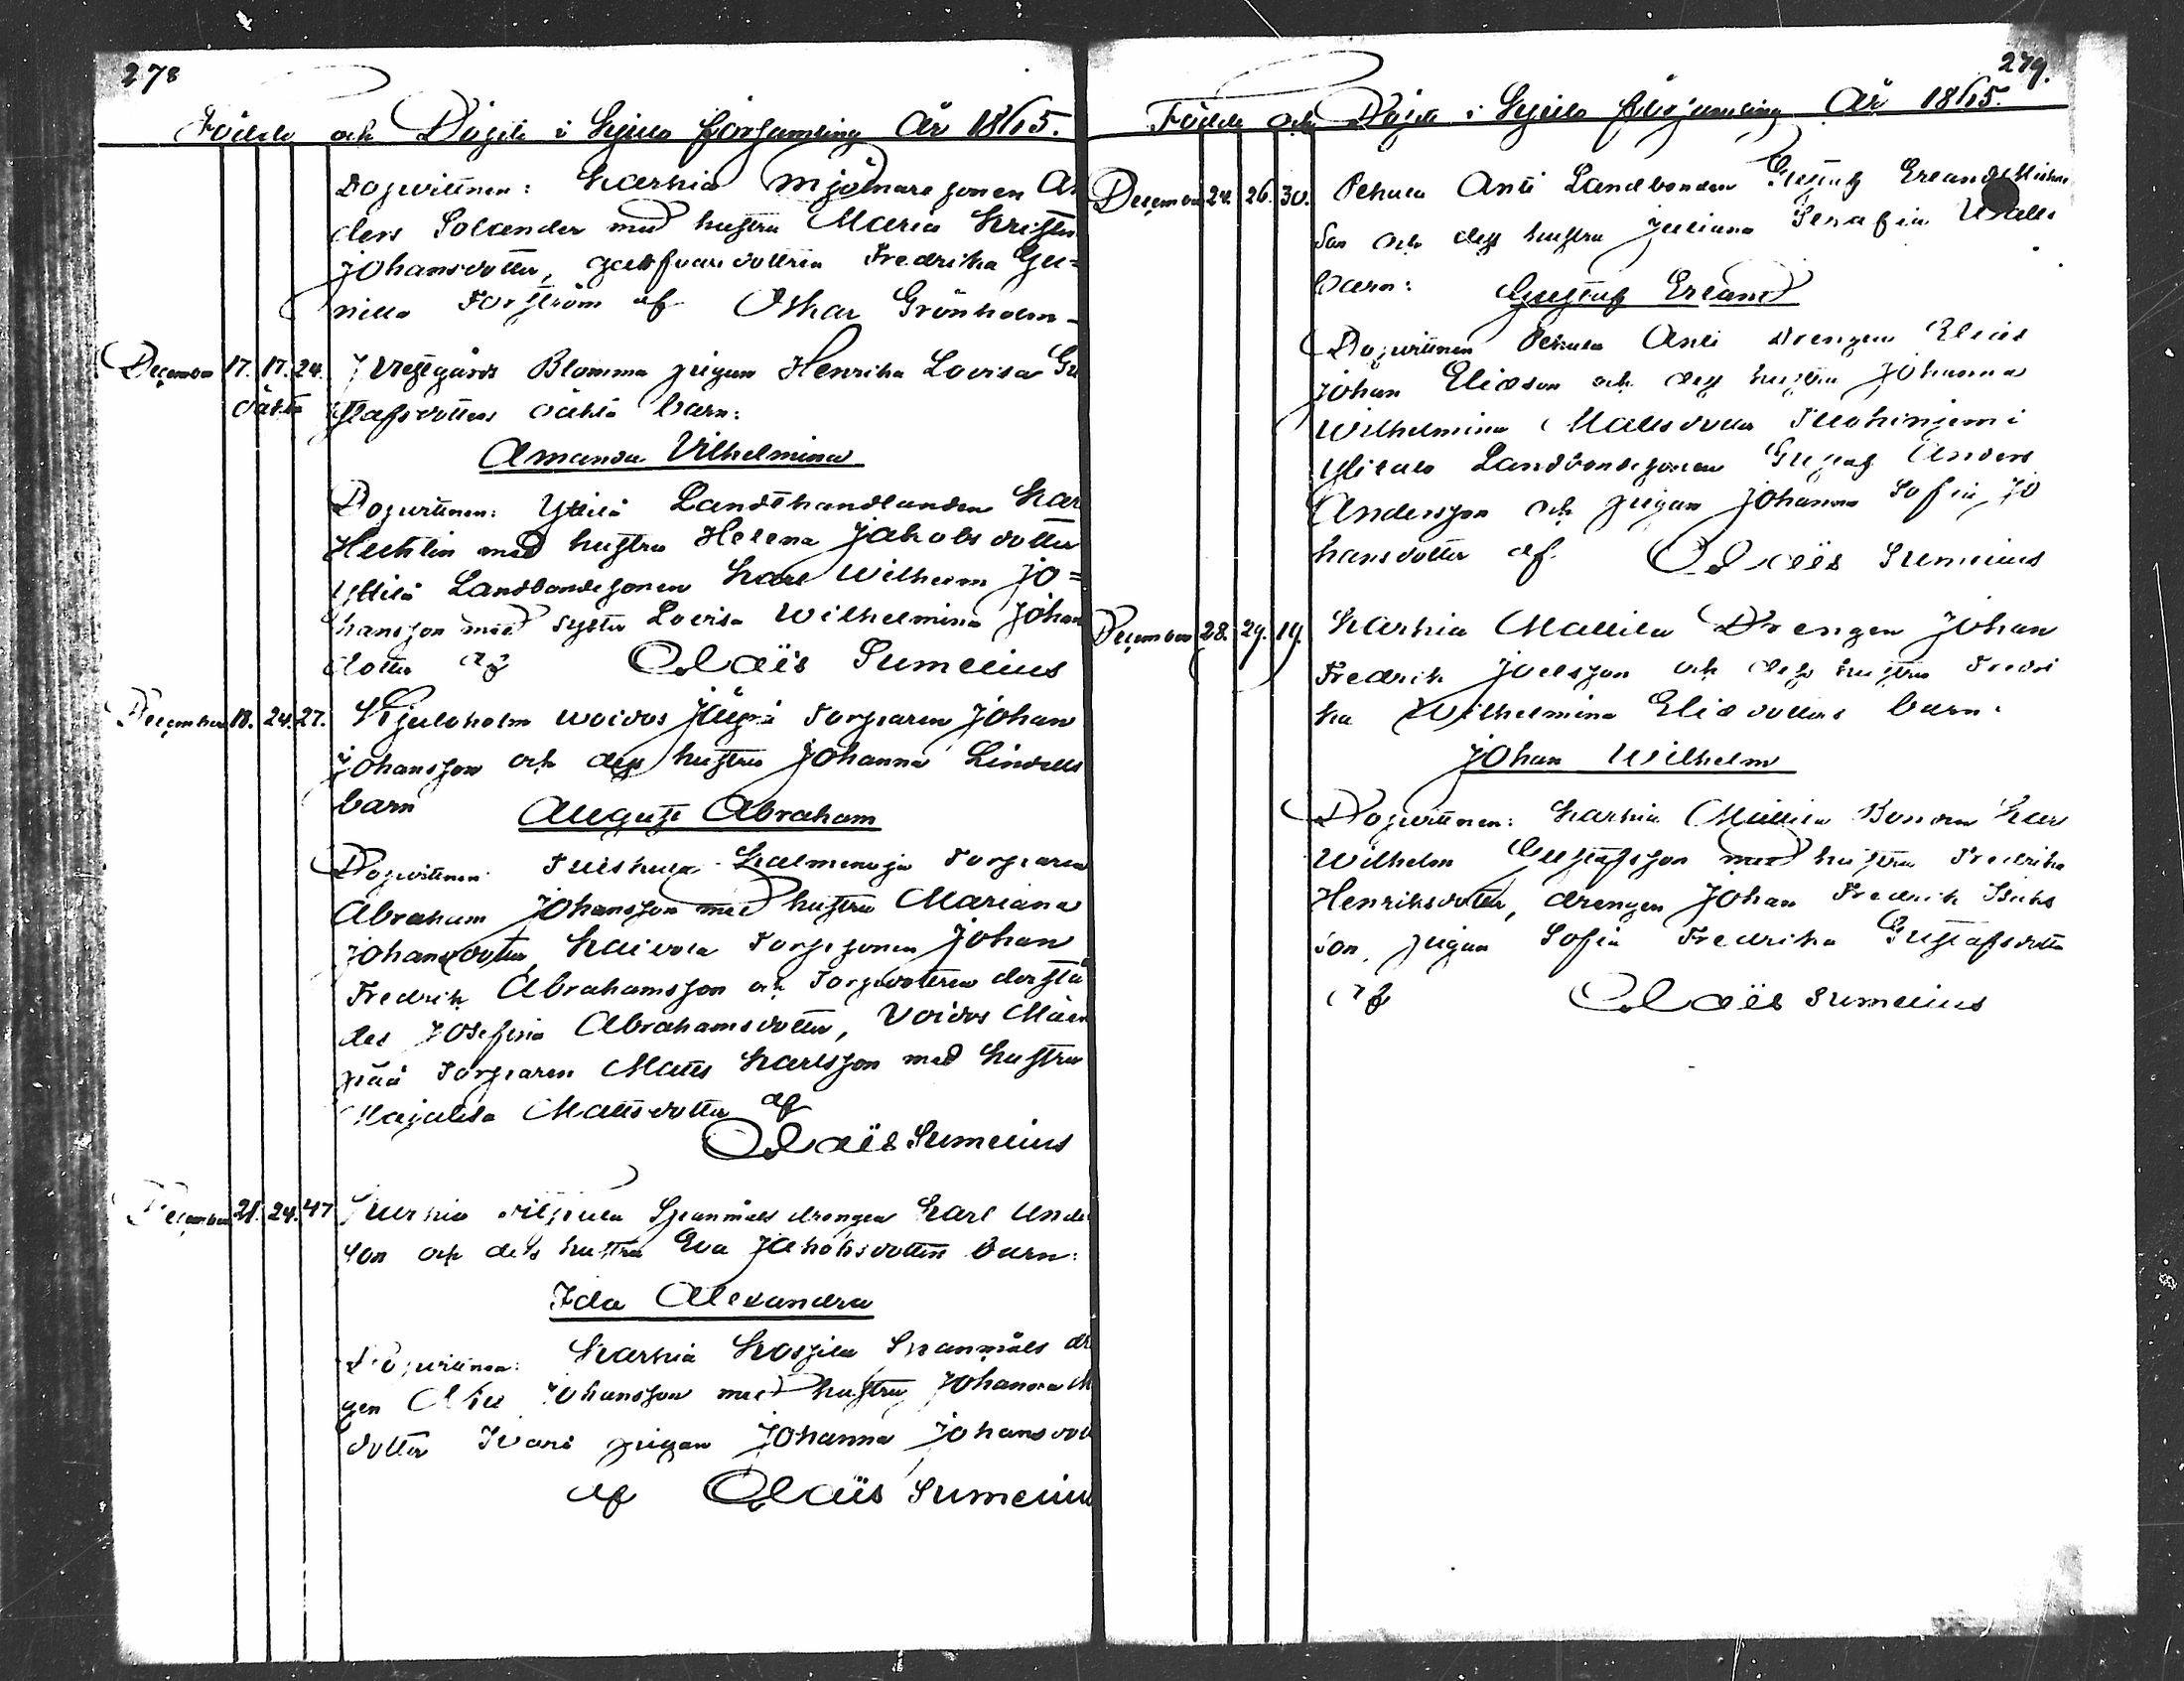 278
Födde och Döpte i Kjulo församling År 1865.
Dopvittnen: Karhia mjölnaresonen An
ders Solander med hustru Maria Kristin
Johansdotter, gästgifvaredottren Fredrika Gu=
nilla Forström af Oskar Grönholm
December 17. 17. 24. Prestgårds Blomma pigan Henrika Lovisa Gu
oäkta stafsdotters oäkta barn:
Amanda Vilhelmina
Dopvittnen: Yttilä Landthandlanden Karl
Hechlin med hustru Helena Jakobsdotter
Yttilä Landbondesonen Karl Wilhelm Jo=
hansson med syster Lovisa Wilhelmina Johans
dotter af Claës Sumelius
December 18. 24. 27. Kjuloholm Torparen Johan
Johansson och dess hustru Johanna Lindells
barn August Abraham
Dopvittnen Torparen
Abraham Johansson med hustru Mariana
Johansdotter, Torpsonen Johan
Fredrik Abrahamsson och Torpdottren derstä
des Josefina Abrahamsdotter, Voidos Mäen
pää Torparen Matts Karlsson med hustru
Majalisa Mattsdotter af
Claës Sumelius
December 21. 24. 47 Spanmåls drengen Karl Anders
son och dess hustru Eva Jakobsdotters barn:
Ida Alexandra
Dopvittnen: Karhia Spanmåls dr
gen Johansson med hustru Johanna M
dotter pigan Johanna Johansdott
af Claës Sumelius
279.
Födde och Döpte i Kjulo församling År 1865.
December 24. 26. 30. Pehula Anti Landbonden Gustaf Erland
son och dess hustru Juliana Serafia
barn: Gustaf Erland
Dopvittnen Pehula Anti Drengen Elias
Johan Eliasson och dess hustru Johanna
Wilhelmina Mattsdotter
Landbondesonen Gustaf Anders
Andersson och pigan Johanna Sofia Jo
hansdotter af Claës Sumelius
December 28. 29. 19. Karhia Mattila Drengen Johan
Fredrik Joelsson och dess hustru Fredri
ka Wilhelmina Eliædotters barn:
Johan Wilhelm
Dopvittnen: Karhia Mattila Bonden Karl
Wilhelm Gustafsson med hustru Fredrika
Henriksdotter, drengen Johan Fredrik
son, pigan Sofia Fredrika Gustafsdotter
af Claës Sumelius